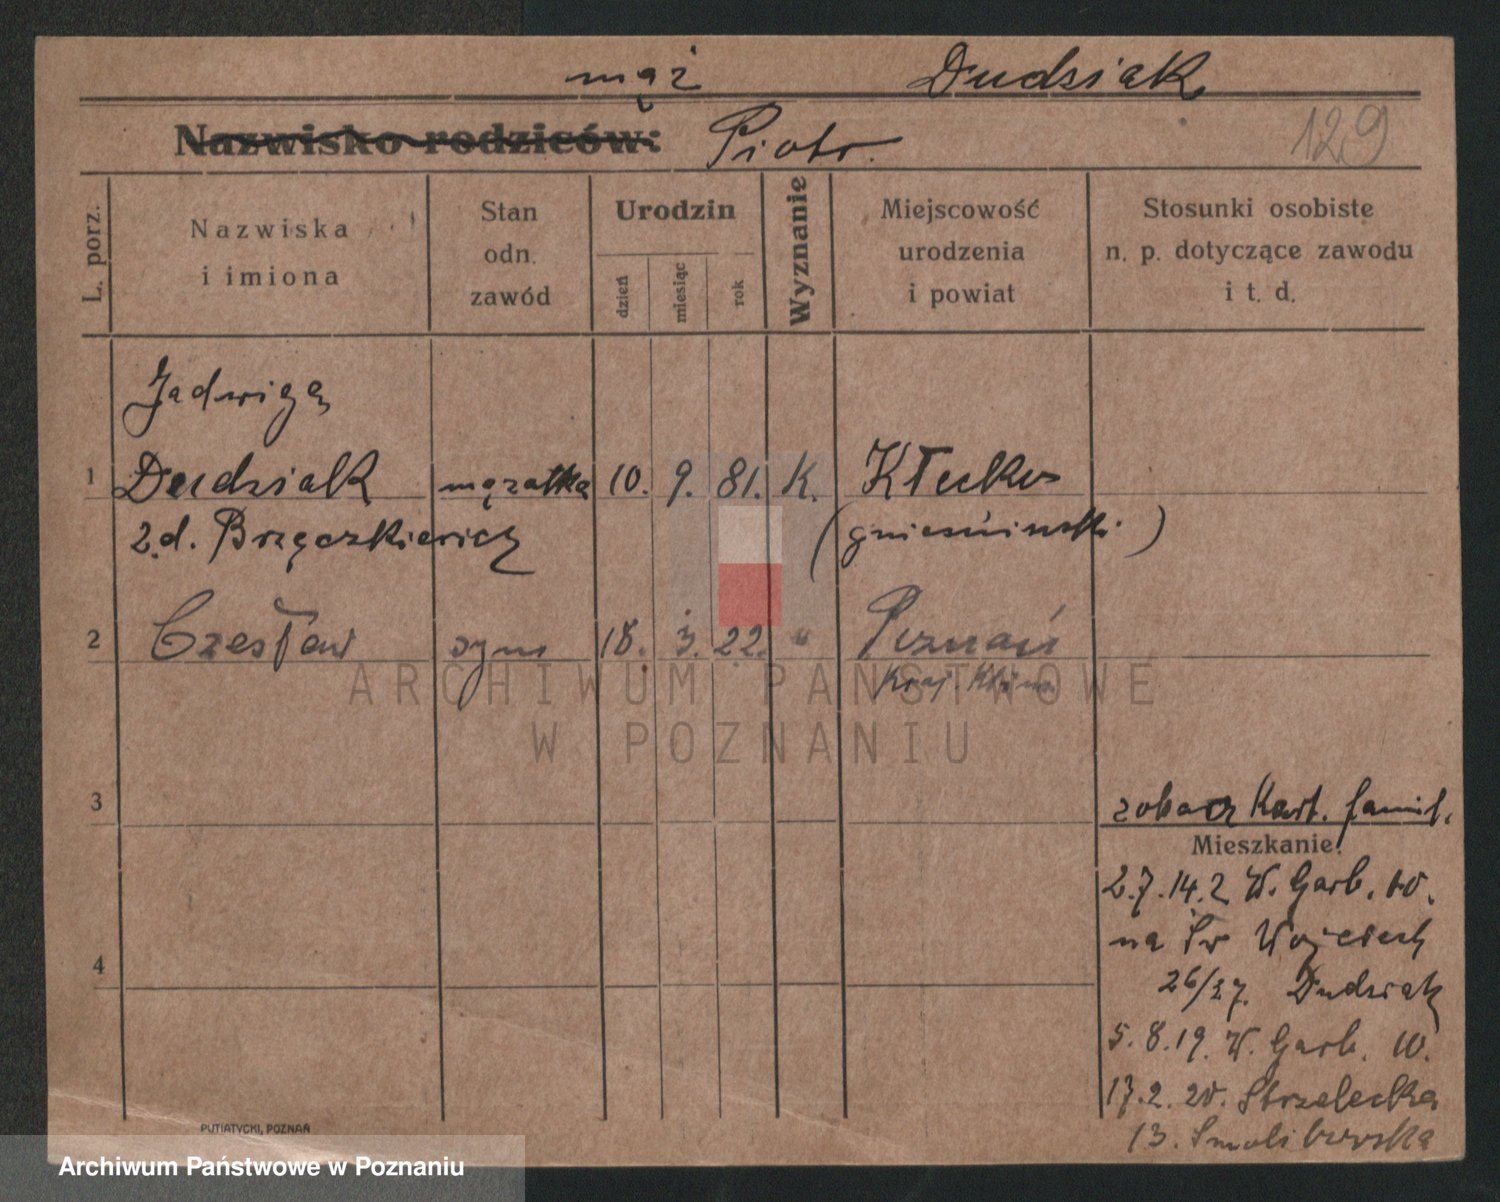 mąż Dudziak
Nazwisko rodziców: Piotr.
129
L. porz.
Nazwiska
i imiona
Stan
odn.
zawód
Urodzin
dzień
miesiąc
rok
Wyznanie
Miejscowość
urodzenia
i powiat
Stosunki osobiste
n. p. dotyczące zawodu
i t. d.
Jadwiga
1 Dudziak mężatka 10. 9. 81. K. Kłecko
z.d. Brzęczkiewicz (gnieźnieński)
2 Czesław syn 18. 3. 22. " Poznań
ARCHIWUM PAŃSTWOWE
W POZNANIU
3
zobacz Kart. famil.
Mieszkanie:
2.7.14. W. Garb. 10.
na Św Wojciech
4
26/27. Dudziak
5.8.19. W. Garb. 10.
17.2.20. Strzelecka
13.
PUTIATYCKI, POZNAŃ
Archiwum Państwowe w Poznaniu